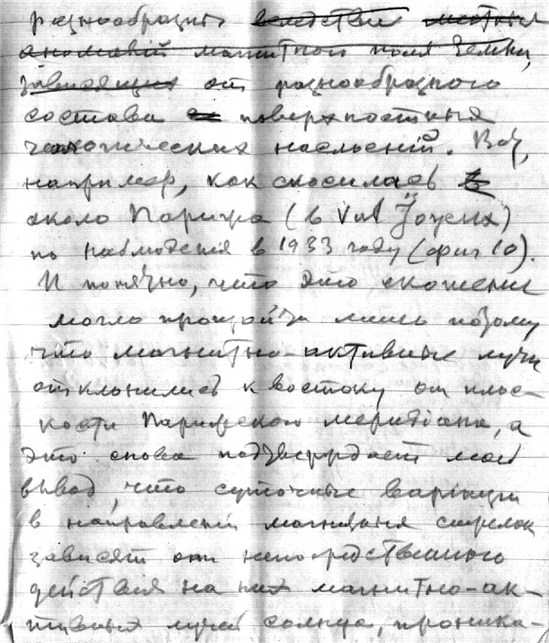 разнообразных вследствие местных
аномалий магнитного поля Земли,
зависящих от разнообразного
состава поверхностных
геологических наслоений. Вот,
например, как скосилась
около Парижа (в Val Joyeux)
по наблюдениям в 1933 году (фиг 10).
И понятно, что это скошение
могло произойти лишь потому
что магнитно-активные лучи
отклонились к востоку от плос-
кости Парижского меридиана, а
это снова подтверждает мой
вывод, что суточные вариации
в направлении магнитных стрелок
зависят от непосредственного
действия на них магнитно-ак-
тивных лучей солнца, проника-